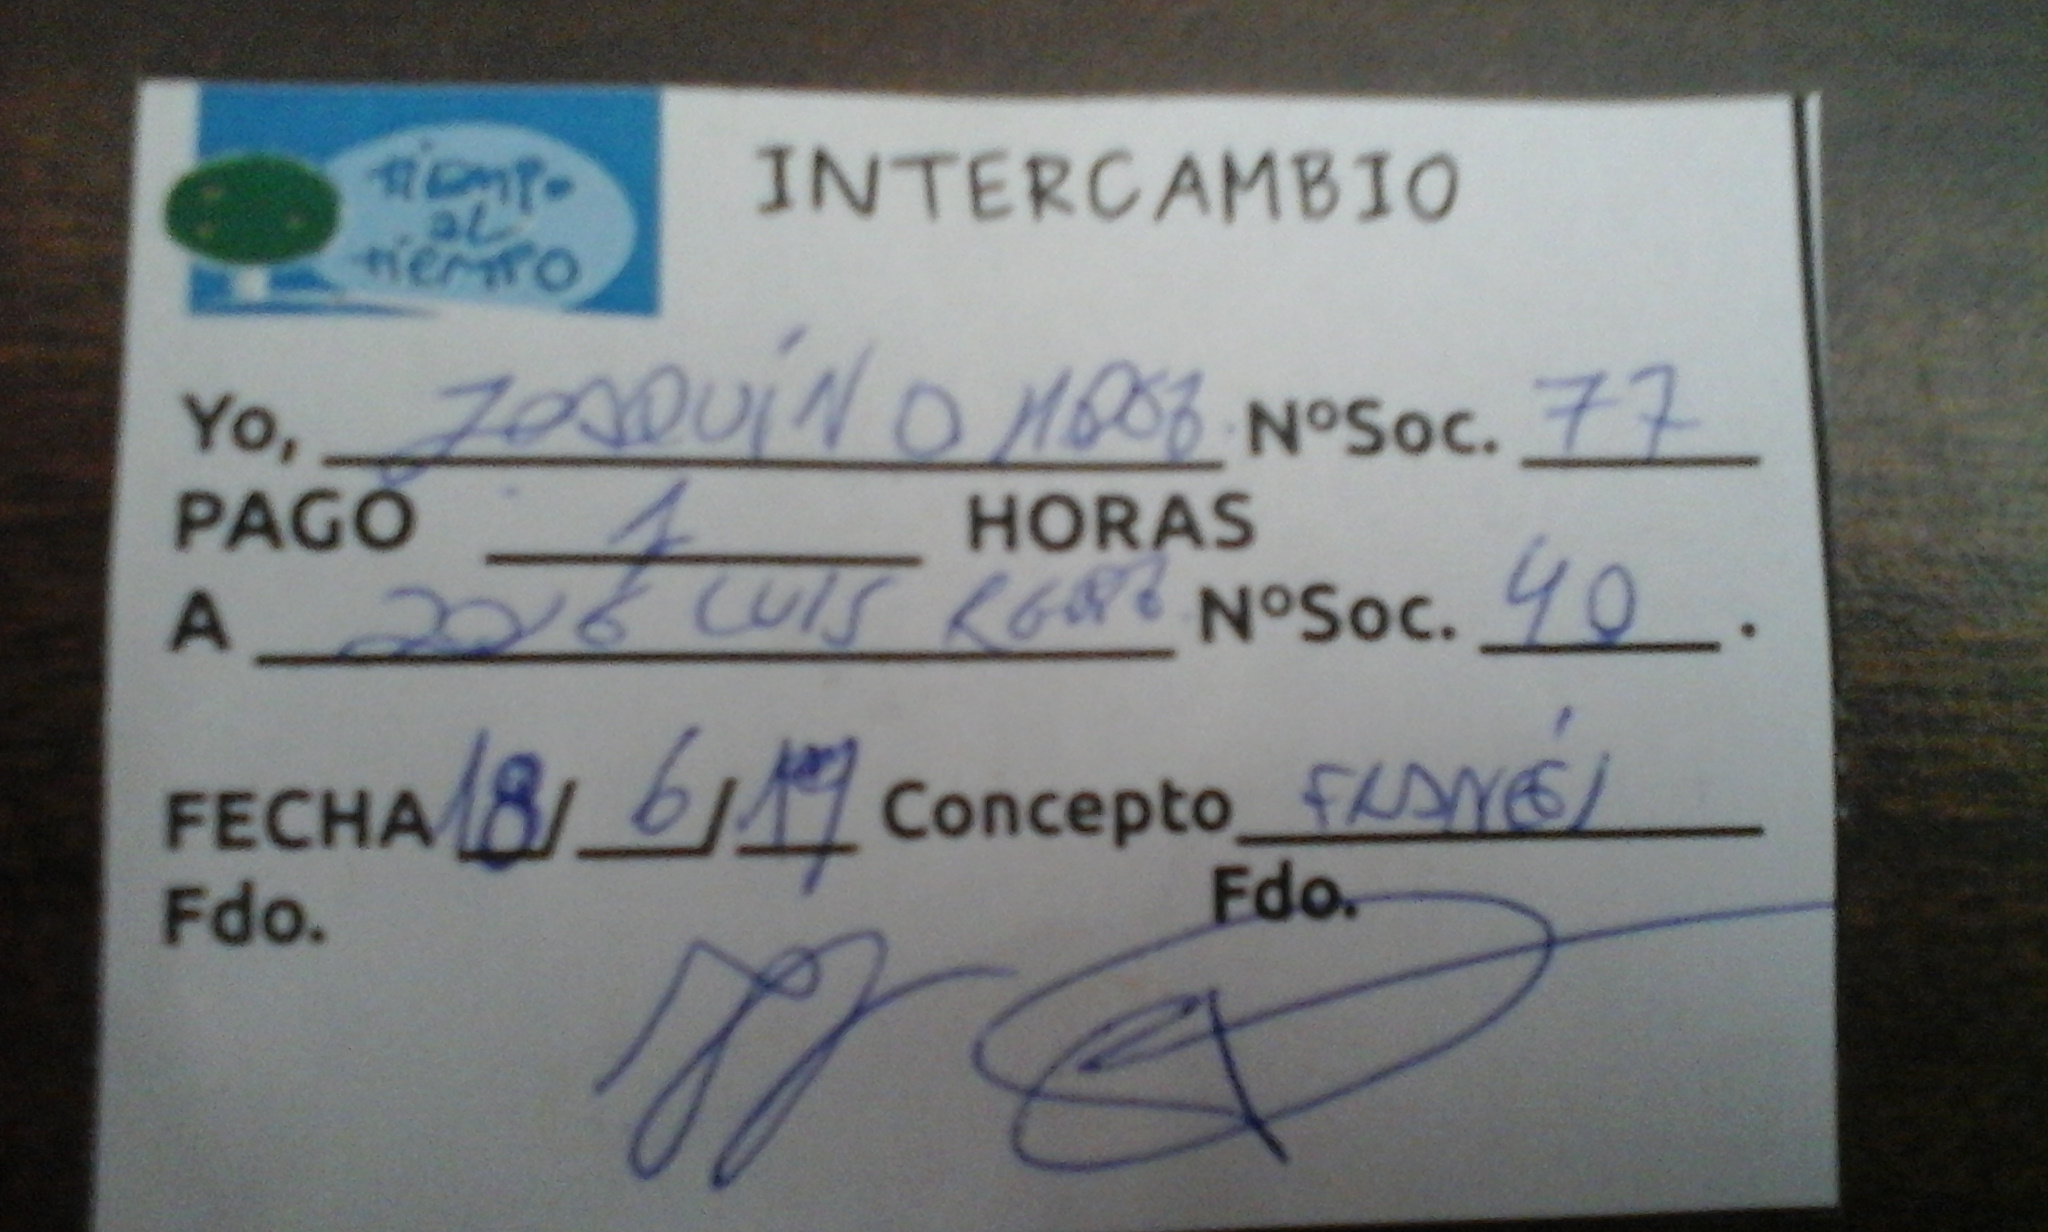 tiempo
al
tiempo
INTERCAMBIO
Yo, JOAQUÍN O NºSoc. 77
PAGO 1 HORAS
A JOSÉ LUIS NºSoc. 40 .
FECHA 18/ 6/17 Concepto
Fdo. Fdo.